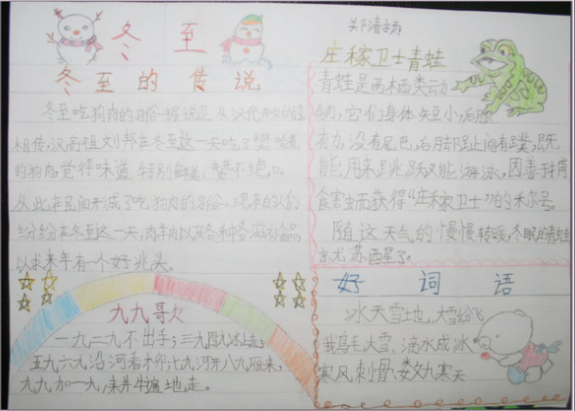 冬至
冬至的传说
冬至吃狗肉的习俗据说是从汉代开始的
相传,汉高祖刘邦在冬至这一天吃了樊哙煮
的狗肉觉得味道特别鲜美,赞不绝口。
从此在民间形成了吃狗肉的习俗,现在的人们
纷纷在冬至这一天,肉羊肉以及各种各滋补品
以求来年有一个好兆头。
九九哥火
一九二九不出手;三九四九冰上走;
五九六九沿河看柳;七九河开八九雁来,
九九加一九,来井牛遍地走。
庄稼卫士青蛙
青蛙是两栖类动
物,它们身体短小,后肢
有力,没有尾巴,后脚趾间有蹼,既
能用来跳跃又能游泳,因善于捕
食害虫而获得“庄稼卫士”的称号。
随这天气的慢慢转暖,冬眠的青蛙
苏醒了。
好词语
冰天雪地,大雪纷飞
鹅毛大雪、滴水成冰
寒风刺骨、数九寒天